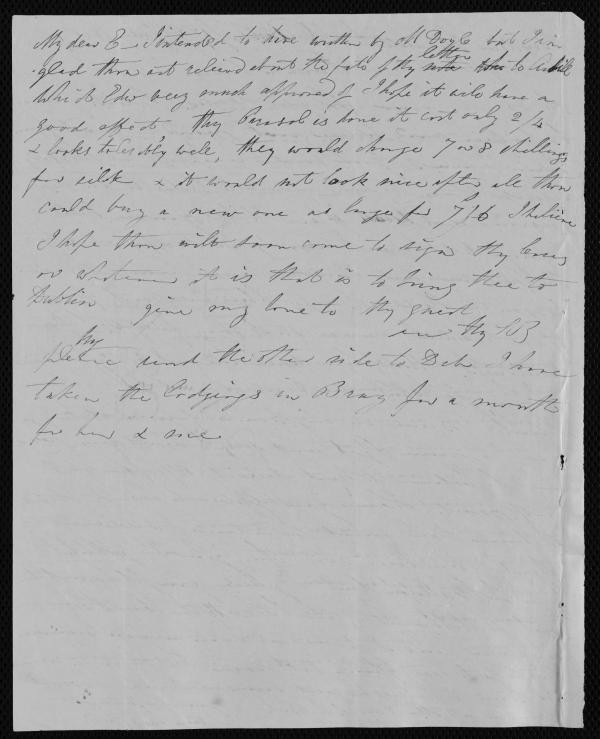 My dear E_ I intended to have written by M Doyle but I am
letter
glad thou art relieved about the fate of thy to
which Edwd very much approved of I hope it will have a
good effect thy Parasol is done it cost only 2/4
& looks tolerably well, they would charge 7 or 8 shillings
for silk & it would not look nice after all thou
could buy a new one as large for 7/6 I believe
I hope thou wilt soon come to sign thy
or whatever it is that is to bring thee to
Dublin give my love to thy guest
thy
send the other side to Deb I have
taken the lodgings in Bray for a month
for her & me